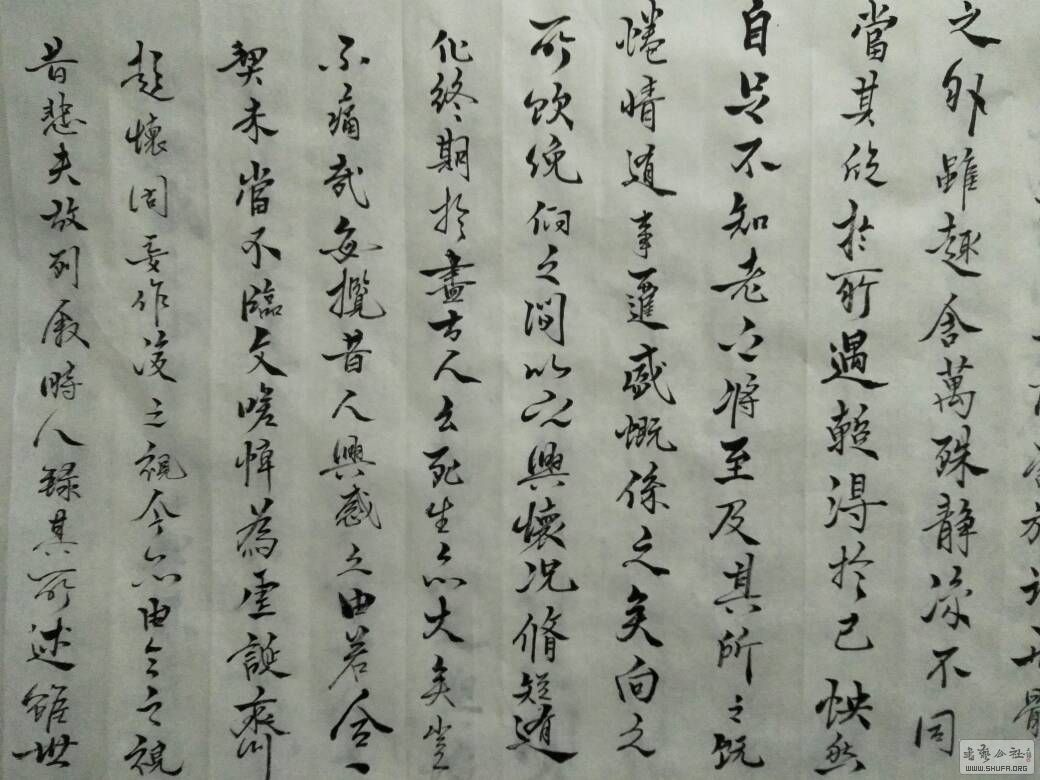 之外雖趣舍萬殊静躁不同
當其欣於所遇輒得於己怏然
自足不知老之将至及其所之既
惓情随事遷感慨係之矣向之
所欣俛仰之間以之興懷况脩短随
化終期於盡古人云死生亦大矣豈
不痛哉每攬昔人興感之由若合一
契未嘗不臨文嗟悼為虚誕齊
懷固妄作後之視今亦由今之視
昔悲夫故列叙時人録其所述雖世
书艺公社
WWW.SHUFA.ORG